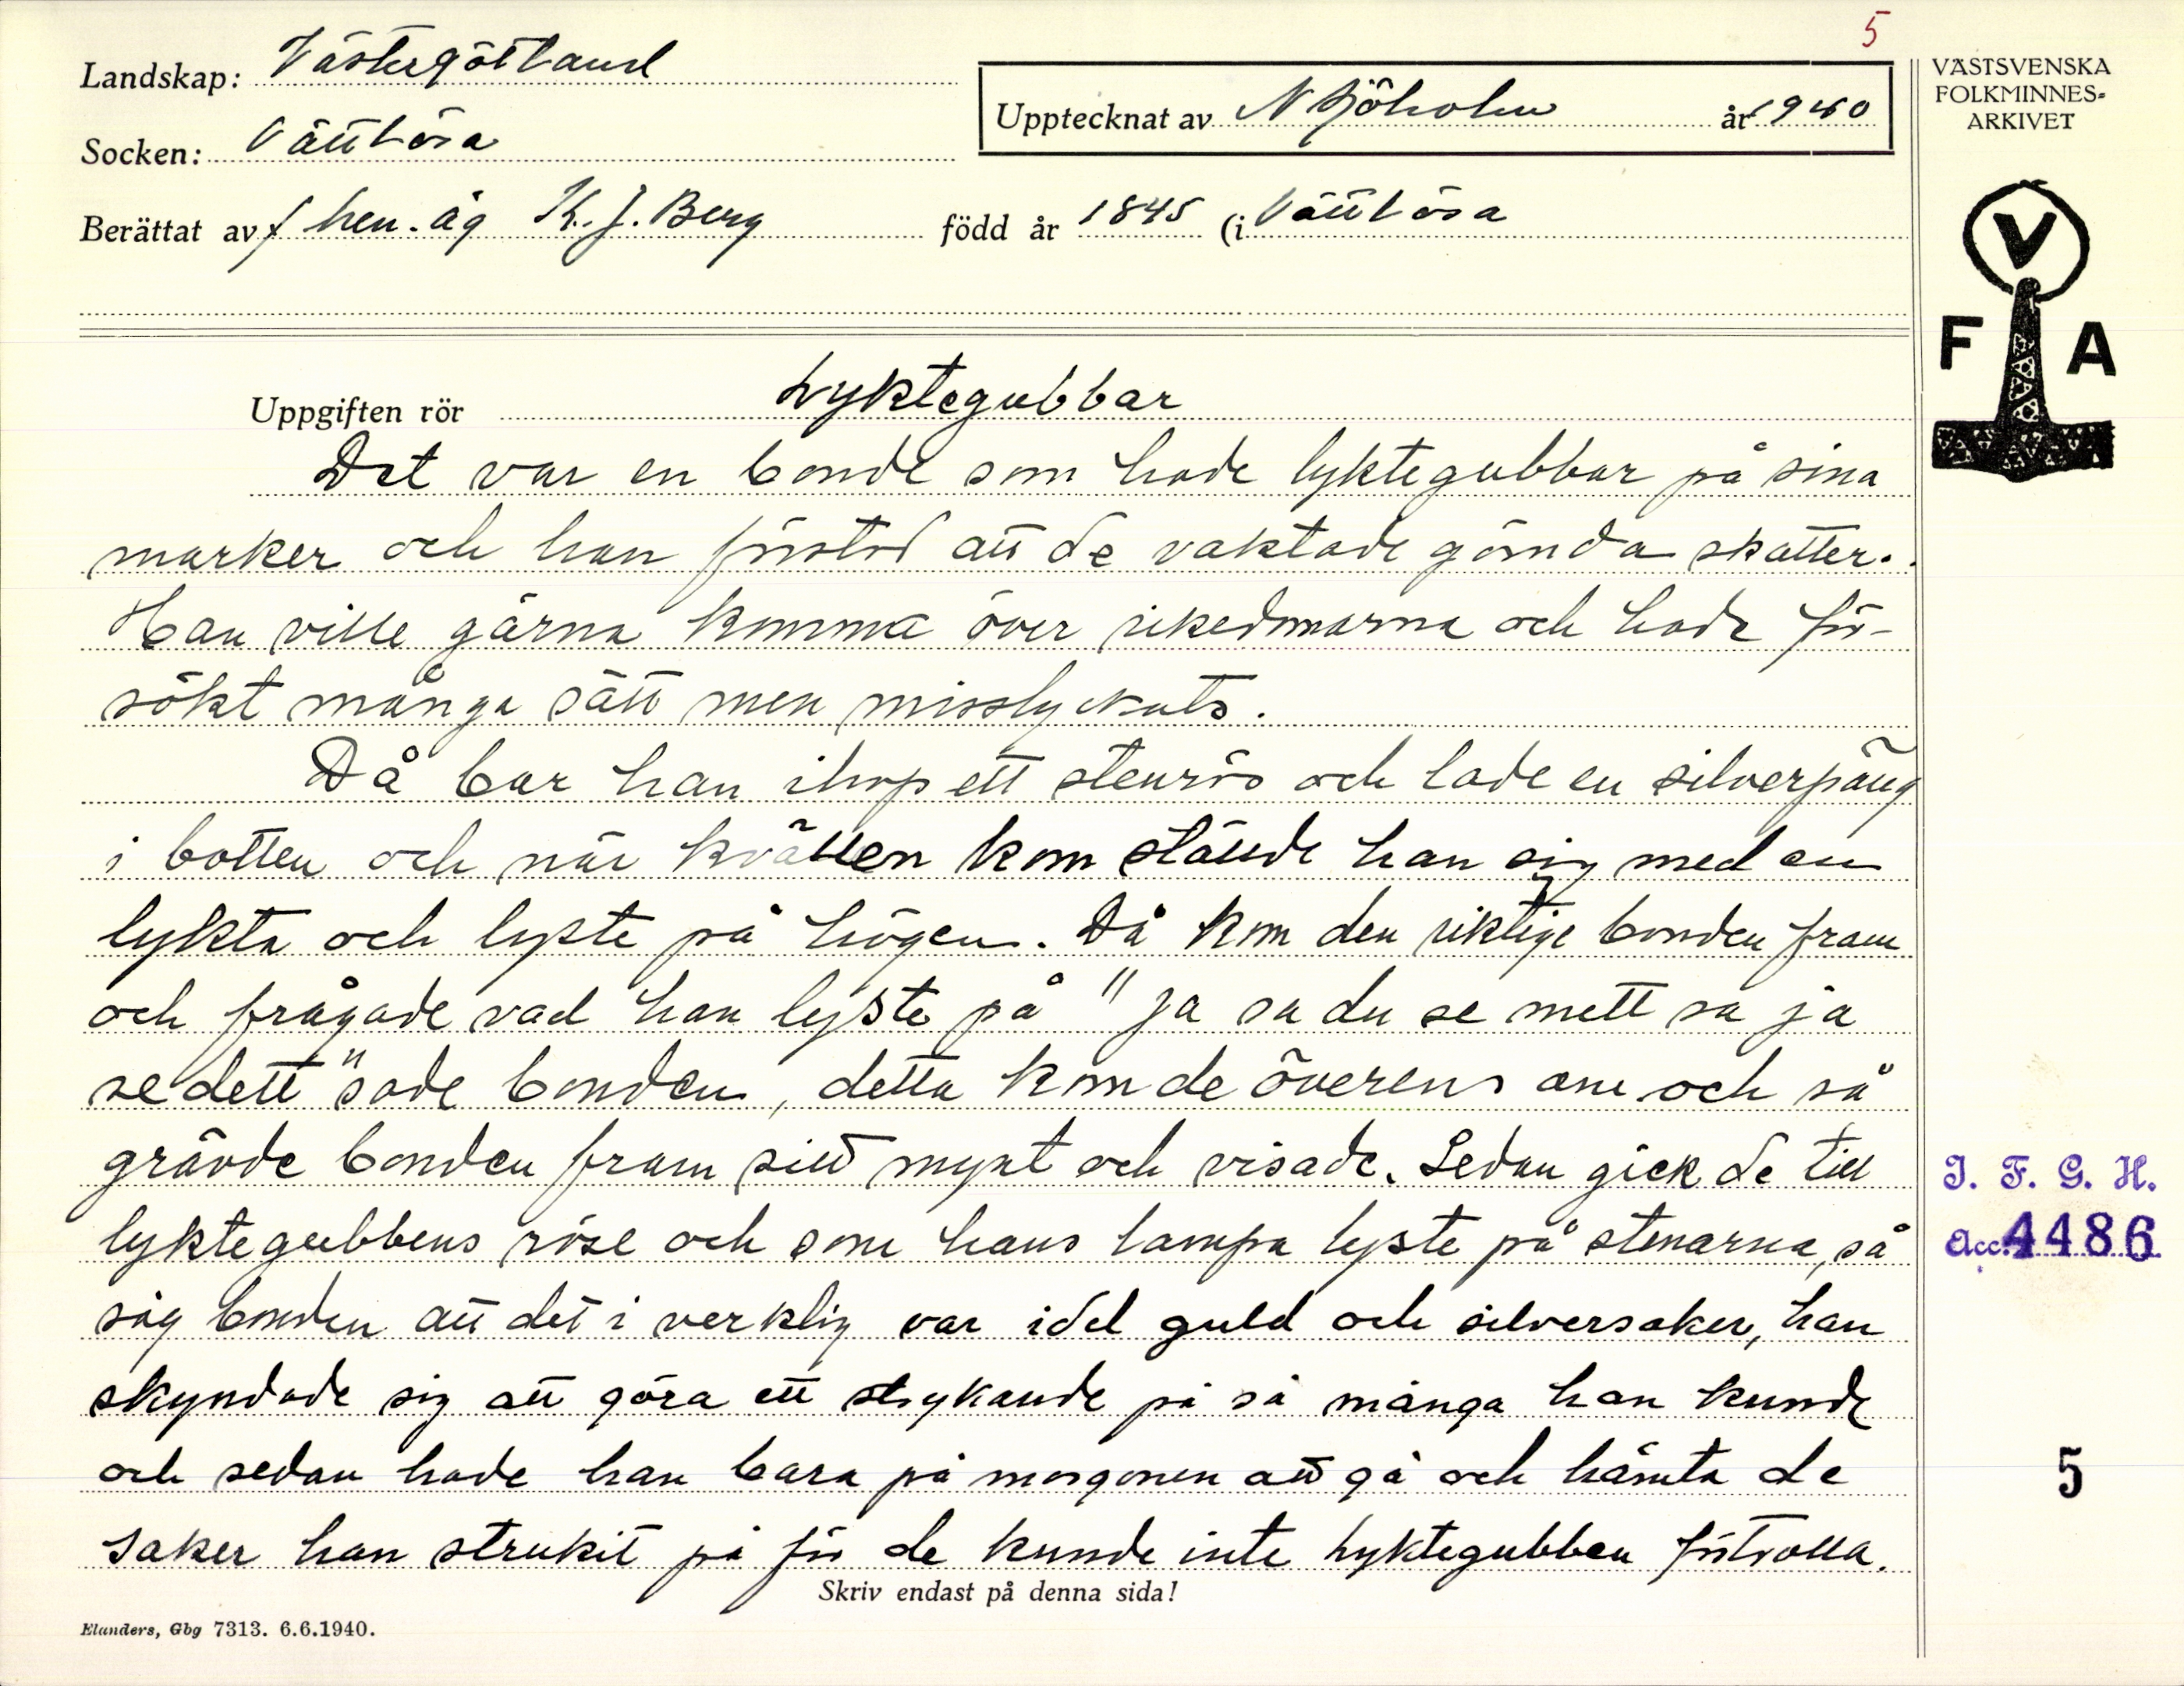 5
Landskap: Västergötland
VÄSTSVENSKA
FOLKMINNES=
ARKIVET
Upptecknat av N Sjöholm år 1940
Socken: Vättlösa
Berättat av f hem. äg K. J. Berg född år 1845 (i Vättlösa
V
F A
Uppgiften rör Lyktegubbar
Det var en bonde som hade lyktegubbar på sina
marker och han förstod att de vaktade gömda skatter.
Han ville gärna komma över rikedomarna och hade för-
sökt många sätt men misslyckats.
Då bar han ihop ett stenrös och lade en silverpäng
i botten och när kvällen kom ställde han sig med en
lykta och lyste på högen. Då kom den riktige bonden fram
och frågade vad han lyste på "ja sa du se mett sa ja
se dett" sade bonden, detta kom de överens om och så
grävde bonden fram sitt mynt och visade. Sedan gick de till
lyktegubbens röse och som hans lampa lyste på stenarna, så
såg bonden att det i verklig var idel guld och silversaker, han
skyndade sig att göra ett strykande på så många han kunde
och sedan hade han bara på morgonen att gå och hämta de
saker han strukit på för de kunde inte lyktegubben förtrolla.
Skriv endast på denna sida!
Elanders, Gbg 7313. 6.6.1940.
I. F. G. H.
Acc. 4486
5